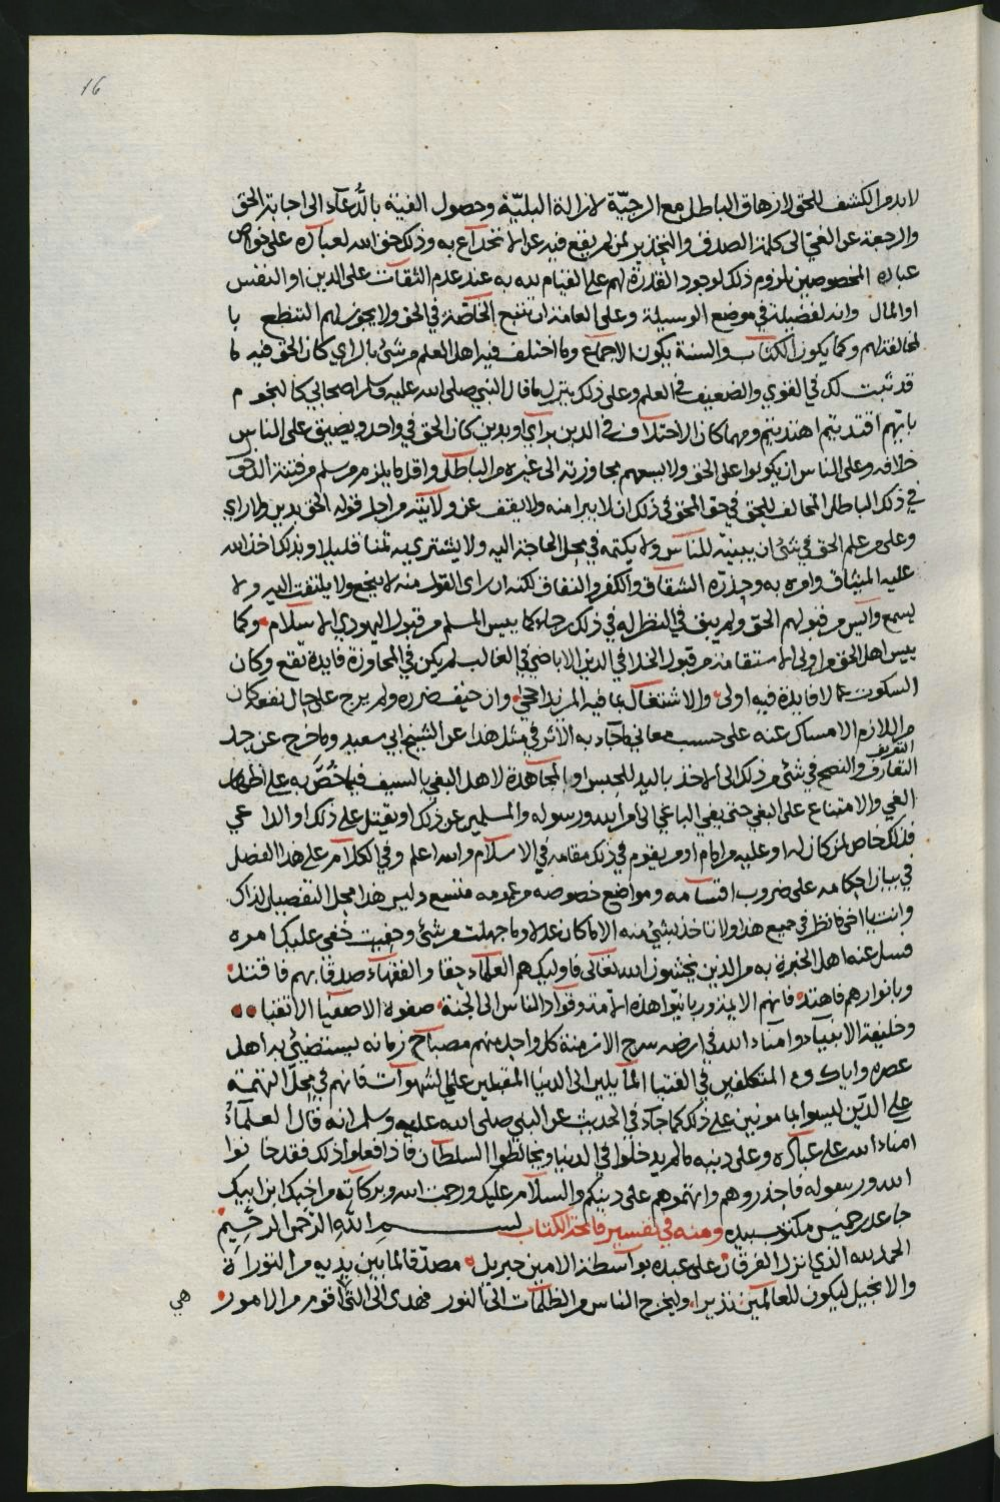 16
لابد من الكشف للحق لازهاق الباطل مع الرجيّة لازالة البليّة وحصول الفية بالدُّعآء الى اجابة الحق
والرجعة عن الغيّ الى كلمة الصدق والتحذير لمن لم يقع فيه عن الانخداع به وذلك حق الله لعباده على خواص
عباده المخصوصين بلزوم ذلك لوجود القدرة لهم على القيام لله به عند عدم الثقات على الدين او النفس
او المال وانه لفضيلة في موضع الوسيلة وعلى العامة ان تتبع الخاصّة في الحق ولا يجوز لهم التنطع با
لمخالفة لهم وكما يكون الكتاب والسنة يكون الاجماع وما اختلف فيه اهل العلم من شئ بالراي كان الحق فيه ما
قد ثبت لك في القوي والضعيف في العلم وعلى ذلك ينزل ما قال النبي صلى الله عليه وسلم اصحابي كالنجوم
بايّهم اقتديتم اهتديتم ومهما كان الاختلاف في الدين براي او بدين كان الحق في واحد ويضيق على الناس
خلافه وعلى الناس ان يكونوا على الحق ولا يسعهم مجاوزته الى غيره من الباطل واقل ما يلزم من مسلم من فتنة الذي
في ذلك الباطل المخالف للحق في حق المحق في ذلك ان لا يبرا منه ولا يقف عن ولايته من اجل قوله الحق بدين ولا راي
وعلى من علم الحق في شئ ان يبينه للناس ولا يكتمه في محل الحاجة اليه ولا يشتري به ثمنا قليلا وبذلك اخذ الله
عليه الميثاق وامره به وحذره الشقاق والكفر والنفاق لكنه ان راى القول منه لا ينجع ولا يلتفت اليه ولا
يسمع وآيس من قبولهم الحق ولم يبق في النظر له في ذلك رجاء كما ييس المسلم من قبول اليهودي الاسلام وكما
ييس اهل الحق من اولى الاستقامة من قبول الخلافي الدين الاباضي في الغالب لم يكن في المحاورة فايدة تقع وكان
السكوت عما لا فايدة فيه اولى والاشتغال بما فيه المزيد احجى وان خيف ضرره ولم يرج على حال نفعه كان
من اللازم الامساك عنه على حسب معاني ما جآء به الاثر في مثل هذا عن الشيخ ابي سعيد وما خرج عن حد
التعريف
التعارف والنصح في شئ من ذلك الى الاخذ باليد للحبس او المجاهدة لاهل البغي بالسيف فيما خُصَّ به على اظهار
الغي والامتناع على البغي حتى يفي الباغي الى امر الله ورسوله والمسلمين عن ذلك او يقتل على ذلك او الداعي
فذلك خاص لمن كان له او عليه من امام او من يقوم في ذلك مقامه في الاسلام والله اعلم وفي الكلام على هذا الفصل
في بيان احكامه على ضروب اقسامه ومواضع خصوصه من عمومه متسع وليس هذا محل التفصيل لذاك
وانت يا اخي فانظر في جميع هذا ولا تاخذ بشئ منه الا ما كان عدلا وما جهلت من شئ وخفيت خفي عليك امره
فسل عنه اهل الخبرة به من الذين يخشون الله تعالى فاوليك هم العلماء حقا والفقهاء صدقا بهم فاقتد
وبانوارهم فاهتد فانهم الابدور ربانيّوا هذه الامة وقواد الناس الى الجنة صفوة الاصفيا الاتقيا
وخليفة الانبيآء وامناء الله في ارضه سرج الازمنة كل واحد منهم مصباح زمانه يستضئ به اهل
عصره واياك ومن المتكلفين في الفتيا المآيلين الى الدنيا المقبلين على الشهوات فانهم في محل التهمة
على الدّين ليسوا بمامونين على ذلك كما جآء في الحديث عن النبي صلى الله عليه وسلم انه قال العلمآءُ
امناء الله على عباده وعلى دينه ما لم يدخلوا في الدنيا ويخالطوا السلطان فاذا فعلوا ذلك فقد خانوا
الله ورسوله فاحذروهم واتهموهم على دينكم والسلام عليك ورحمت الله وبركاته من اخيك ابن ابيك
جاعد بن خميس مكتوب بيده ومنه في تفسير فاتحة الكتاب بسم الله الرحمن الرحيم
الحمد لله الذي نزل الفرقان على عبده بواسطة الامين جبريل مصدّقا لما بين يديه من التوراة
والانجيل ليكون للعالمين نذيرا وليخرج الناس من الظلمات الى النور فهدى الى التي اقوم من الامور
هي